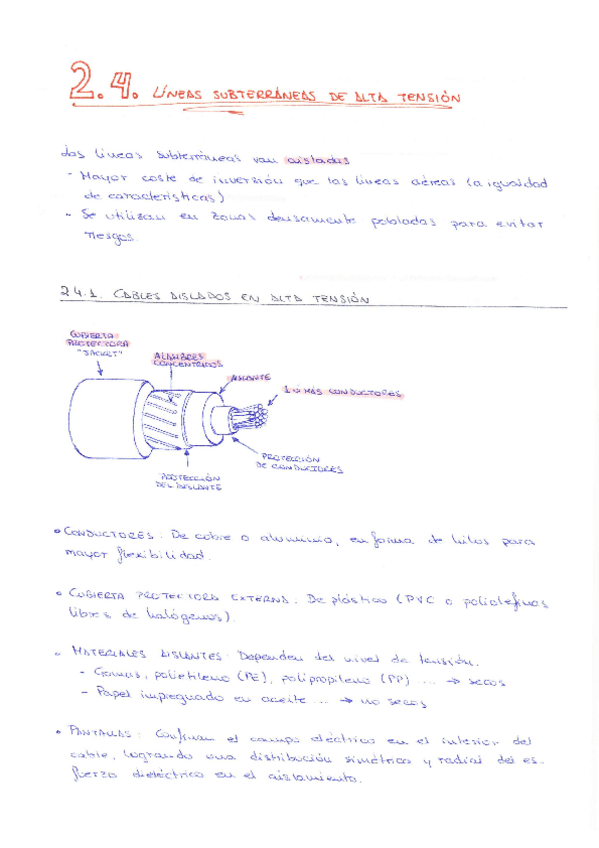 2.4. LÍNEAS SUBTERRÁNEAS DE ALTA TENSIÓN
Las líneas subterráneas van aisladas
- Mayor coste de inversión que las líneas aéreas (a igualdad
de características)
- Se utilizan en zonas densamente pobladas para evitar
riesgos.
2.4.1. CABLES AISLADOS EN ALTA TENSIÓN
CUBIERTA
PROTECTORA
"JACKET"
ALAMBRES
CONCENTRADOS
AISLANTE
1 U MÁS CONDUCTORES
PROTECCIÓN
DE CONDUCTORES
PROTECCIÓN
DEL AISLANTE
• CONDUCTORES: De cobre o aluminio, en forma de hilos para
mayor flexibilidad.
• CUBIERTA PROTECTORA EXTERNA: De plástico (PVC o poliolefinas
libres de halógenos).
• MATERIALES AISLANTES: Dependen del nivel de tensión.
- Gomas, polietileno (PE), polipropileno (PP) ... → secos
- Papel impregnado en aceite ... → no secos
• PANTALLAS: Confinan el campo eléctrico en el interior del
cable, logrando una distribución simétrica y radial del es-
fuerzo dieléctrico en el aislamiento.